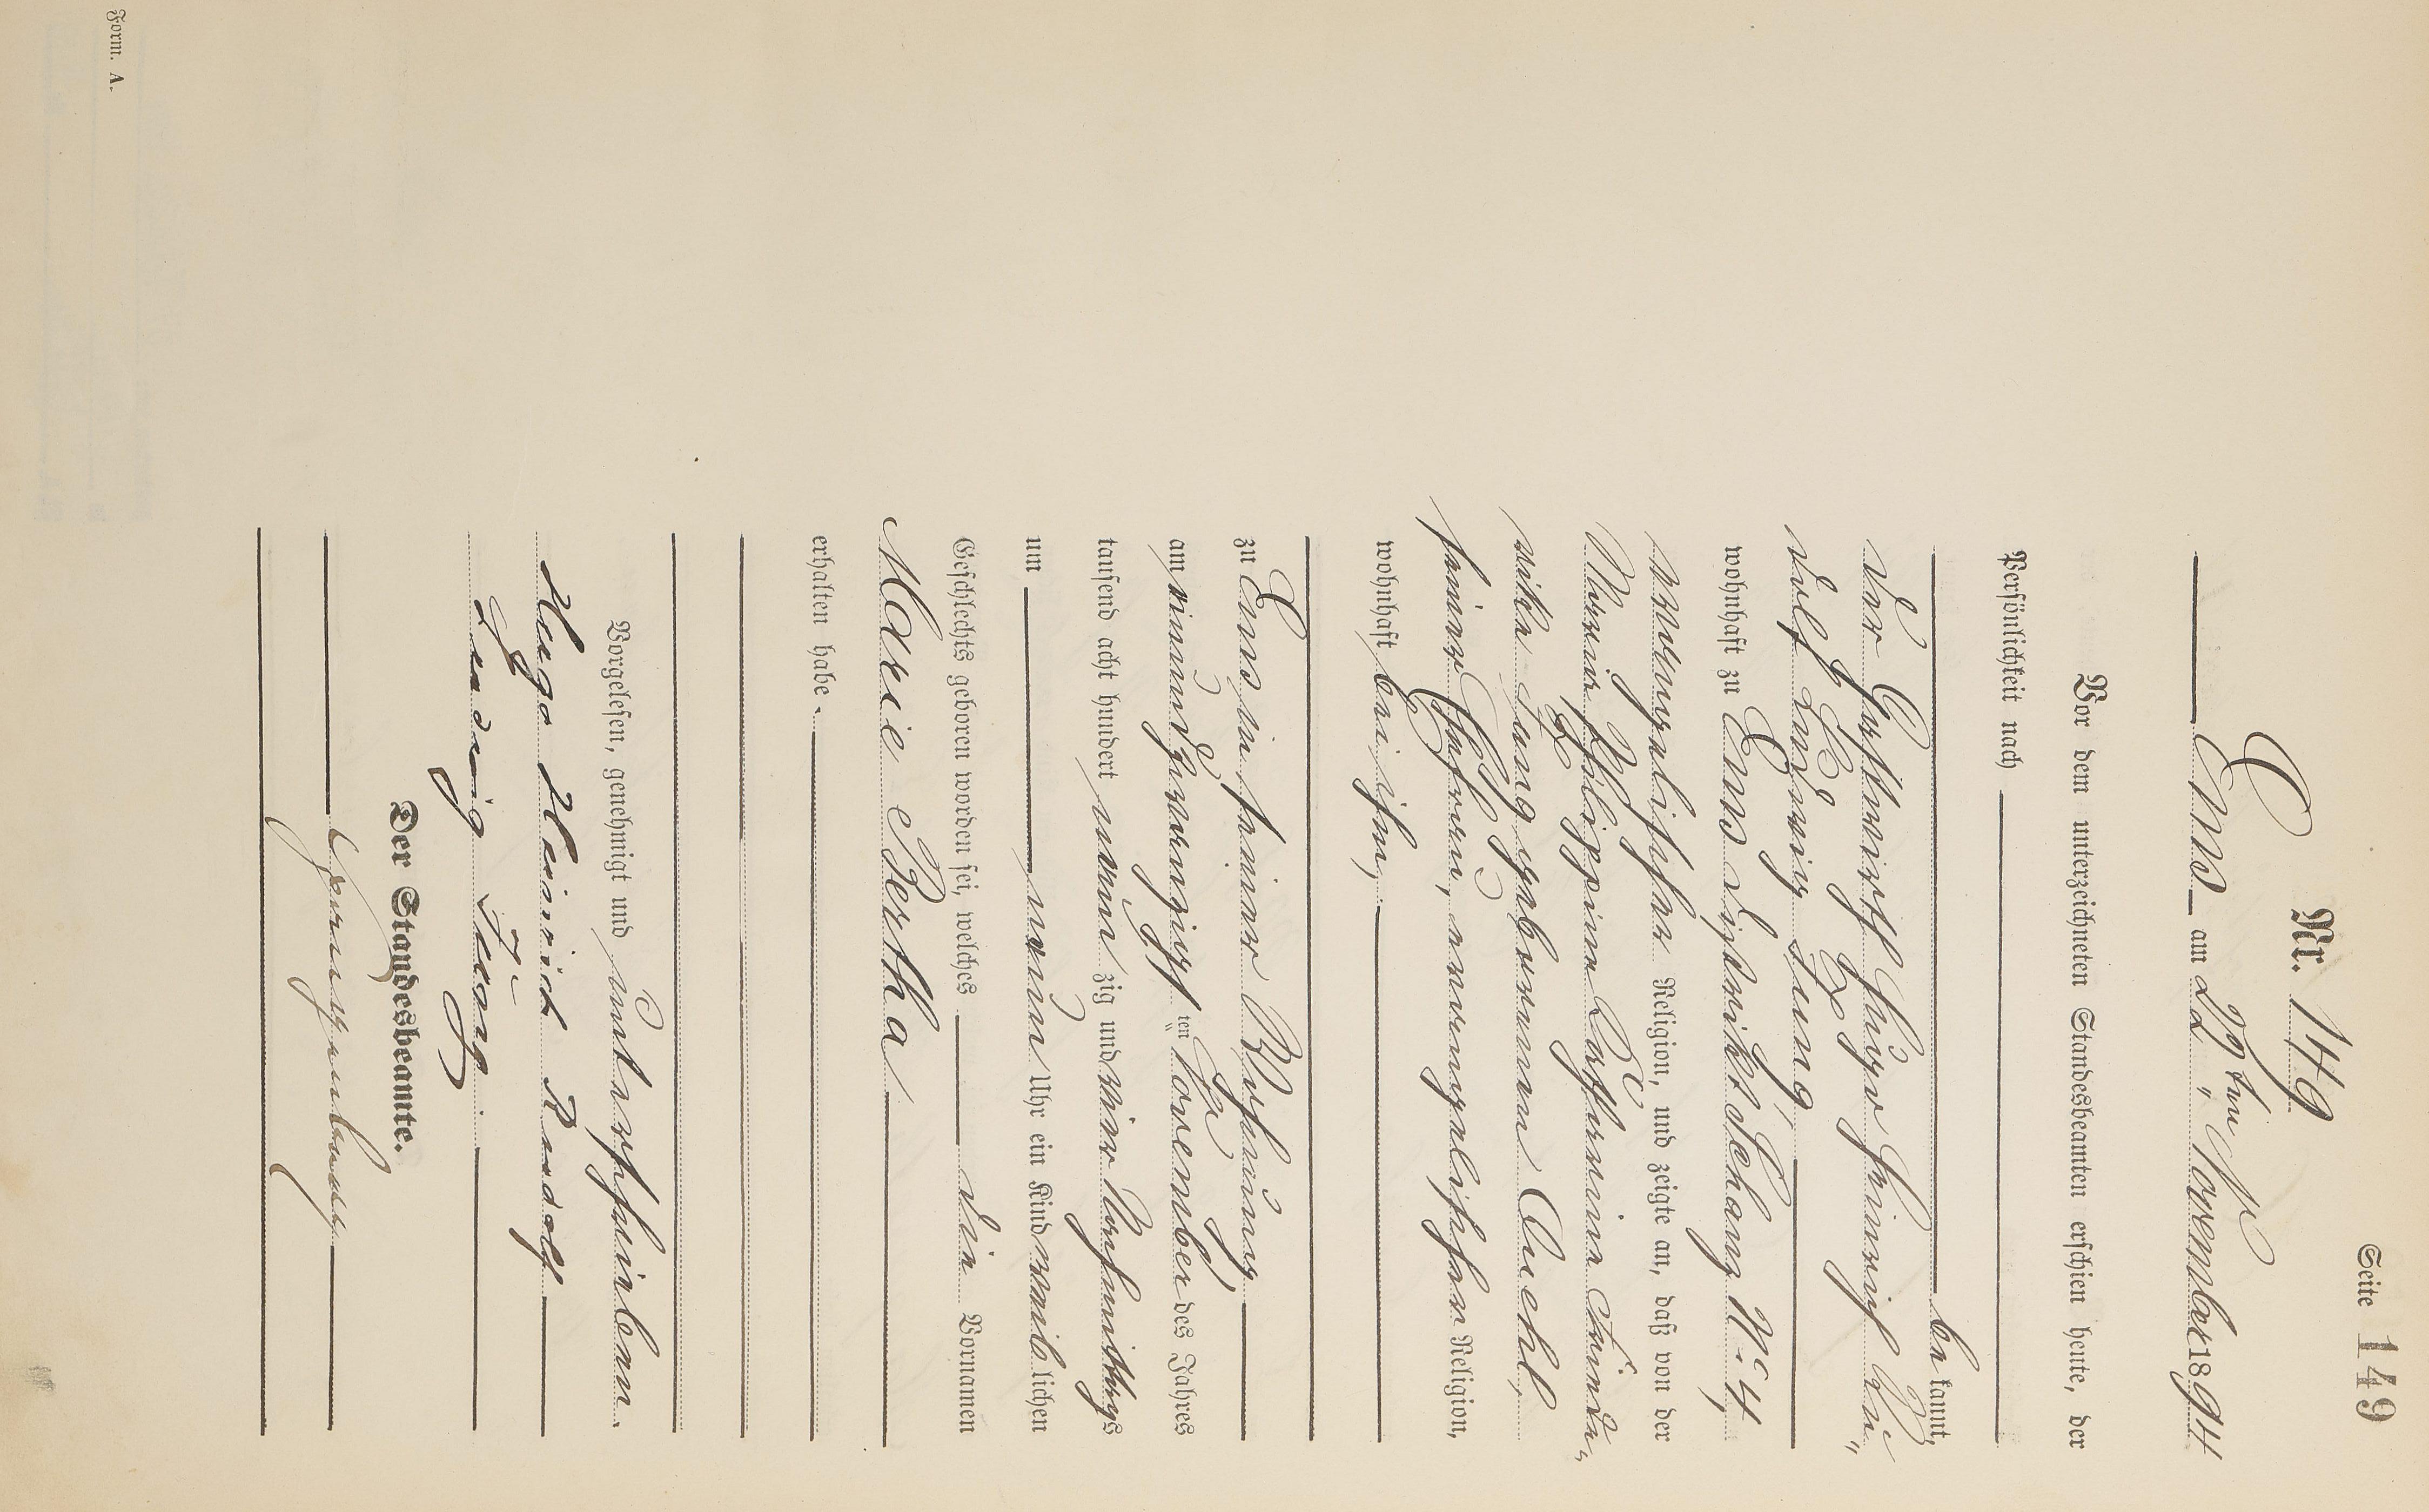 Seite 149
Nr. 149
Ems am 29ten November 1894
Vor dem unterzeichneten Standesbeamten erschien heute, der
Persönlichkeit nach
bekannt,
der Gastwirth Hugo Heinrich Ru„
dolf Ludwig Jung,
wohnhaft zu Ems Distrikt Schanz No 4,
evangelischer Religion, und zeigte an, daß von der
Maria Philippine Catharina Friede„
rike Jung geborenen Diehl,
seiner Ehefrau, evangelischer Religion,
wohnhaft bei ihm,
zu Ems in seiner Wohnung,
am einundzwanzigsten November des Jahres
tausend acht hundert neunzig und vier Nachmittags
um neun Uhr ein Kind weiblichen
Geschlechts geboren worden sei, welches die Vornamen
Marie Bertha
erhalten habe.
Vorgelesen, genehmigt und unterschrieben.
Hugo Heinrich Rudolf
Ludwig Jung.
Der Standesbeamte.
Form. A.